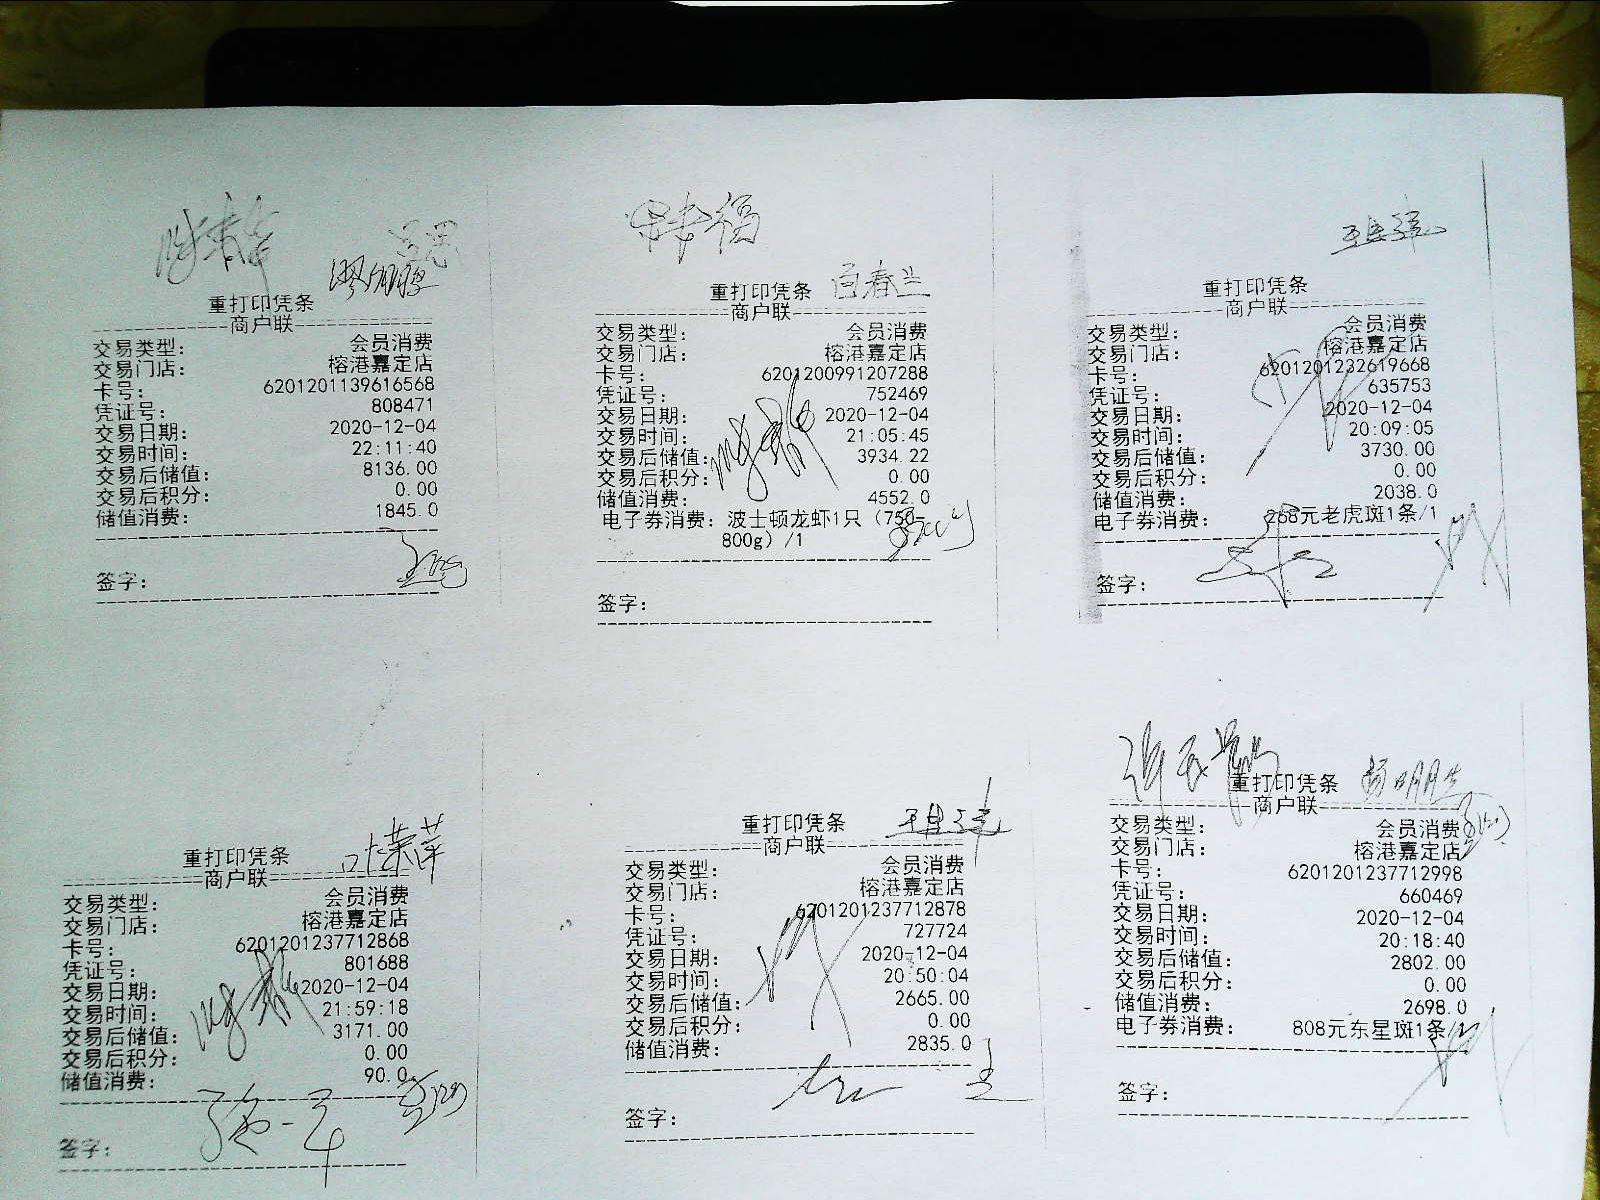 重打印凭条
商户联
交易类型： 会员消费
交易门店： 榕港嘉定店
卡号： 6201201139616568
凭证号： 808471
交易日期： 2020-12-04
交易时间： 22:11:40
交易后储值： 8136.00
交易后积分： 0.00
储值消费： 1845.0
签字：
幸福
白春兰
重打印凭条
商户联
交易类型： 会员消费
交易门店： 榕港嘉定店
卡号： 6201200991207288
凭证号： 752469
交易日期： 2020-12-04
交易时间： 21:05:45
交易后储值： 3934.22
交易后积分： 0.00
储值消费： 4552.0
电子券消费：波士顿龙虾1只（750-
800g）/1
签字：
重打印凭条
商户联
交易类型： 会员消费
交易门店： 榕港嘉定店
卡号： 6201201232619668
凭证号： 635753
交易日期： 2020-12-04
交易时间： 20:09:05
交易后储值： 3730.00
交易后积分： 0.00
储值消费： 2038.0
电子券消费： 268元老虎斑1条/1
签字：
重打印凭条
商户联
交易类型： 会员消费
交易门店： 榕港嘉定店
卡号： 6201201237712868
凭证号： 801688
交易日期： 2020-12-04
交易时间： 21:59:18
交易后储值： 3171.00
交易后积分： 0.00
储值消费： 90.0
签字：
重打印凭条
商户联
交易类型： 会员消费
交易门店： 榕港嘉定店
卡号： 6201201237712878
凭证号： 727724
交易日期： 2020-12-04
交易时间： 20:50:04
交易后储值： 2665.00
交易后积分： 0.00
储值消费： 2835.0
签字：
重打印凭条
商户联
交易类型： 会员消费
交易门店： 榕港嘉定店
卡号： 6201201237712998
凭证号： 660469
交易日期： 2020-12-04
交易时间： 20:18:40
交易后储值： 2802.00
交易后积分： 0.00
储值消费： 2698.0
电子券消费： 808元东星斑1条/1
签字：